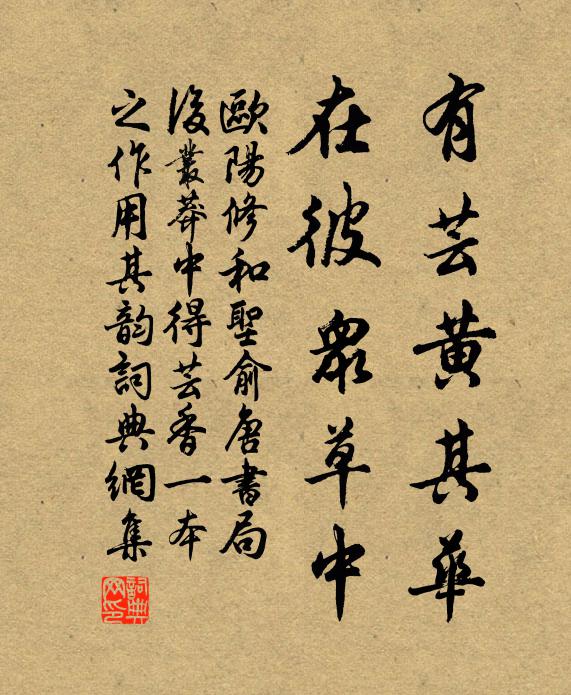 有芸黄其華
在彼衆草中
歐陽修和聖俞唐書局
後叢莽中得芸香一本
之作用其韵詞典網集
詞典网印